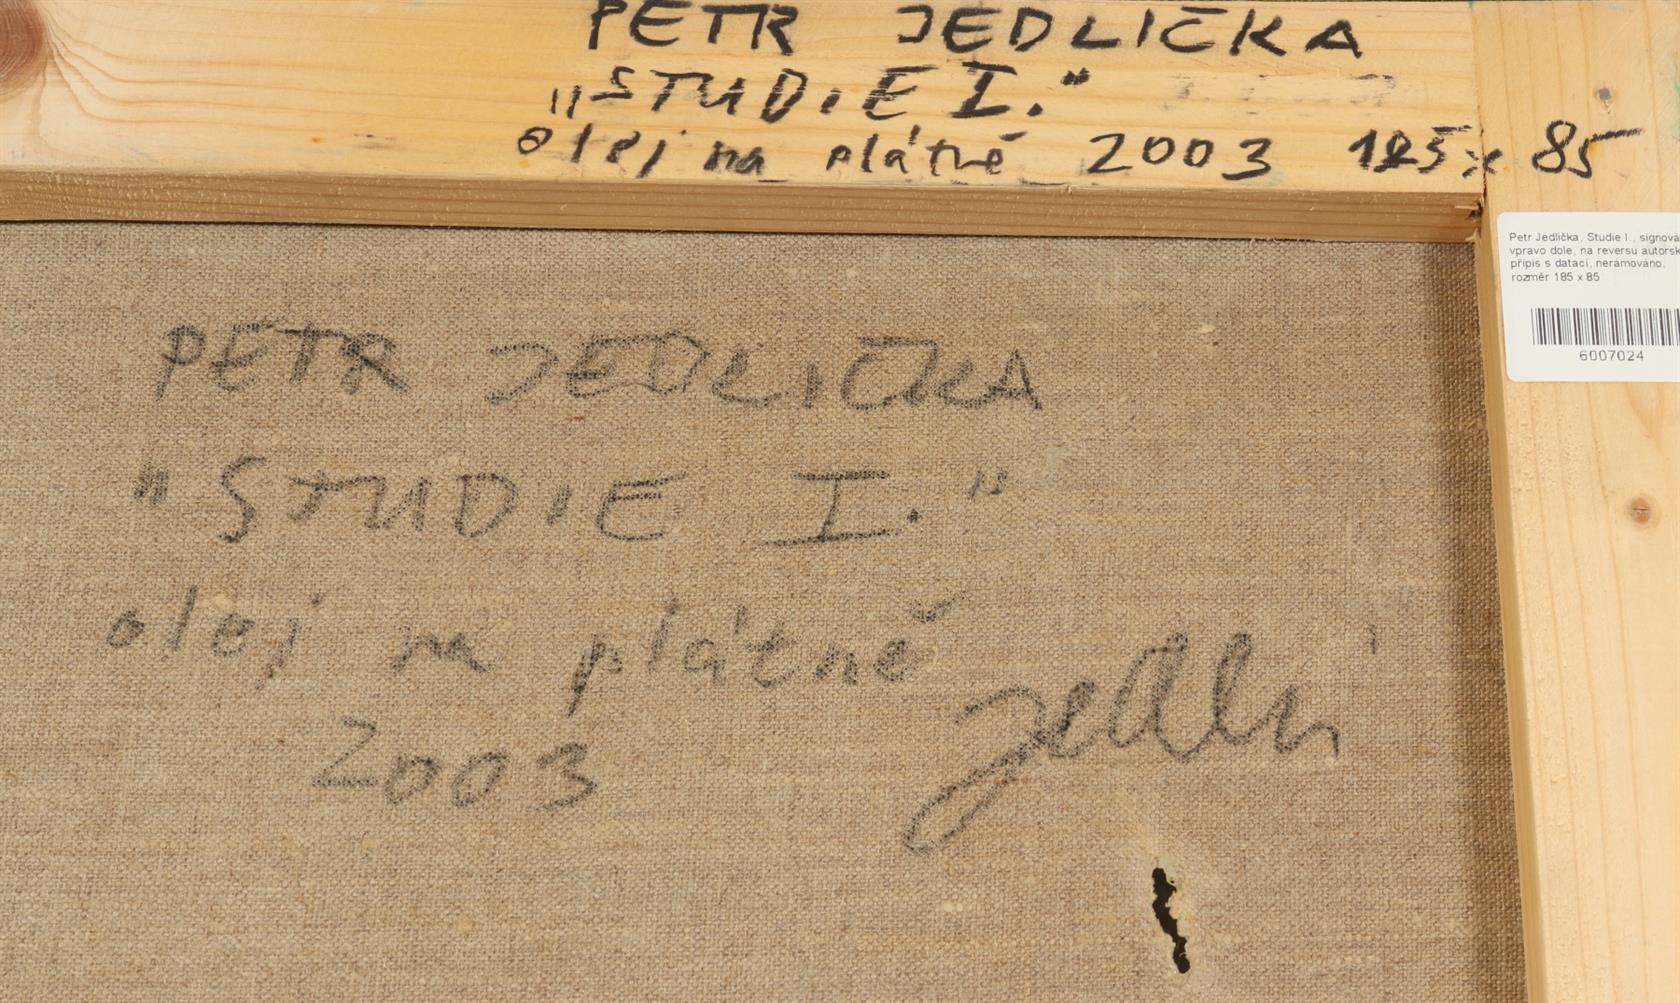 PETR JEDLIČKA
"STUDIE I."
olej na plátně 2003 185 x 85
Petr Jedlička, Studie I., signová
vpravo dole, na reversu autorsk
přípis s datací, nerámováno,
rozměr 185 x 85
6007024
PETR JEDLIČKA
"STUDIE I."
olej na plátně
2003